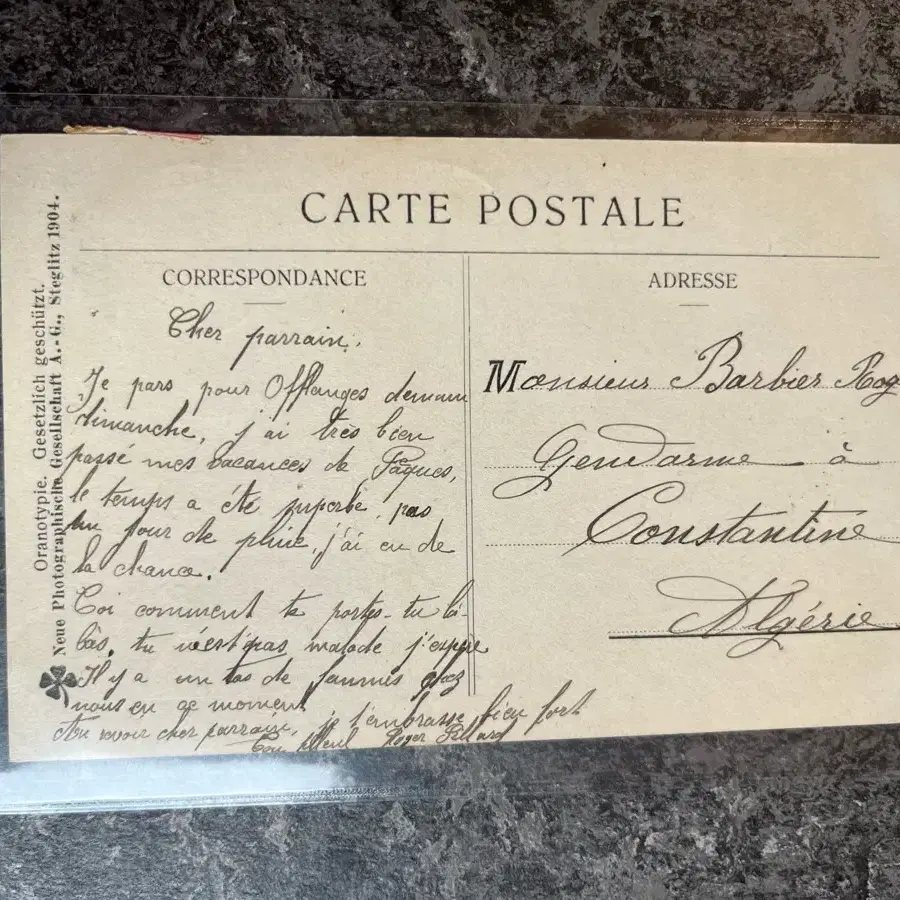 CARTE POSTALE
CORRESPONDANCE
Cher parrain,
Je pars pour Offlanges demain
dimanche, j'ai très bien
passé mes vacances de Pâques,
le temps a été superbe, pas
un jour de pluie, j'ai eu de
la chance.
Toi comment te portes-tu là-
bàs, tu n'est pas malade j'espère
Il y a un tas de
nous en ce moment
Au revoir cher parrain, je t'embrasse bien fort
Ton filleul Roger
ADRESSE
Monsieur Barbier Rog
Gendarme à
Constantine
Algérie
Oranotypie. Gesetzlich geschützt.
Neue Photographische Gesellschaft A.-G., Steglitz 1904.